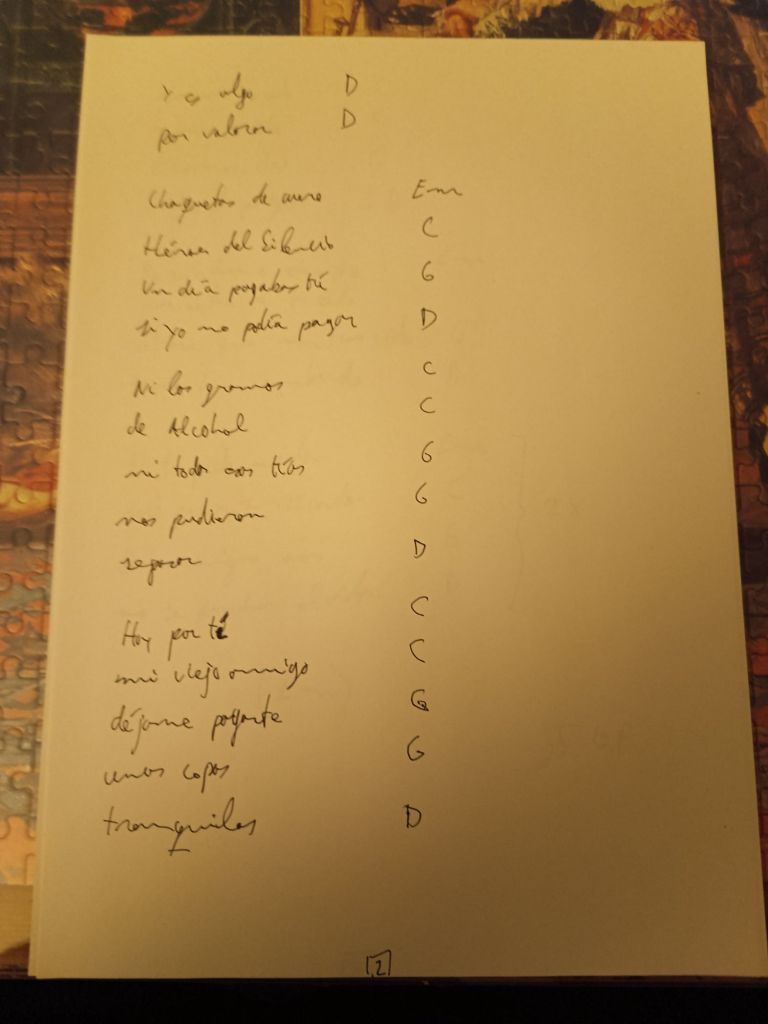 Y es algo D
por valorar D
Chaquetas de cuero Em
Héroes del Silencio C
Un día pagabas tú G
si yo no podía pagar D
Ni los gramos C
de Alcohol C
ni todas esas tías G
nos pudieron G
separar D
Hoy por ti C
mi viejo amigo C
déjame pagarte G
unas copas G
tranquilas D
2